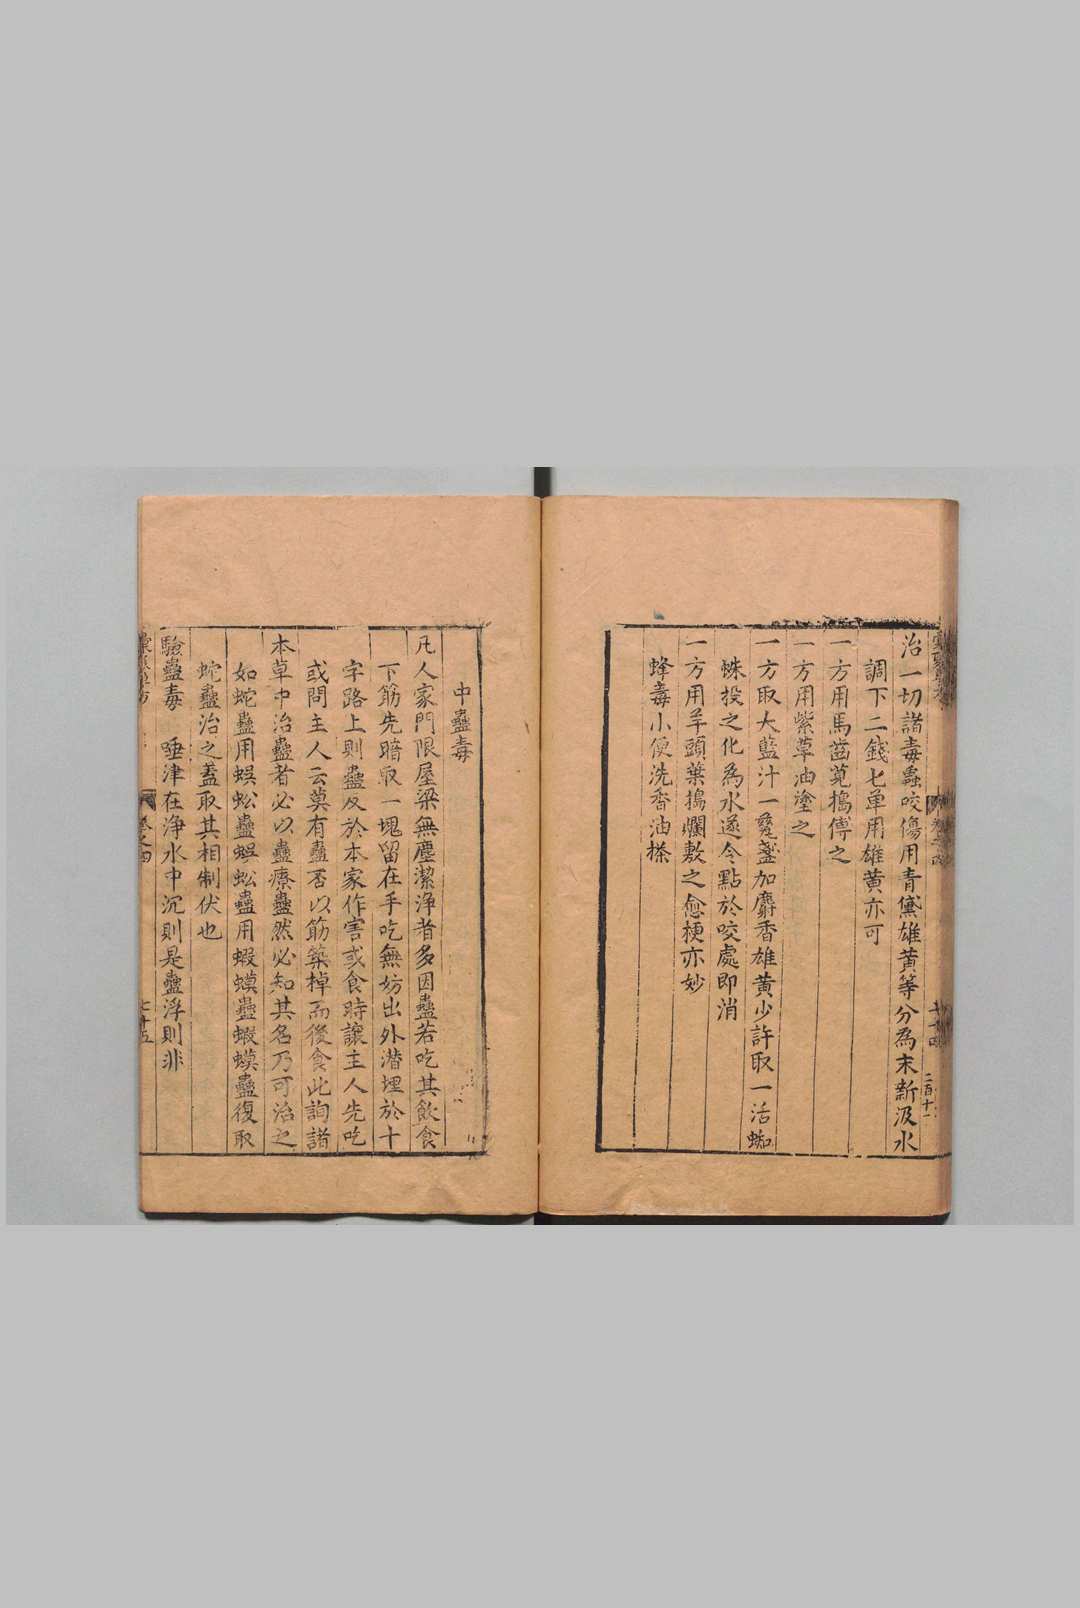 治一切諸毒蟲咬傷用青黛雄黃等分為末新汲水
調下二錢匕单用雄黃亦可
一方用馬齒莧搗傅之
一方用紫草油塗之
一方取大藍汁一盞加麝香雄黃少許取一活蜘
蛛投之化為水遂令點於咬處即消
一方用芋頭葉搗爛敷之愈梗亦妙
蜂毒小便洗香油搽
二百十一
中蠱毒
凡人家門限屋梁無塵潔浄者多因蠱若吃其飲食
下筯先暗取一塊留在手吃無妨出外潜埋於十
字路上則蠱反於本家作害或食時讓主人先吃
或問主人云莫有蠱否以筯築棹而後食此詢諸
本草中治蠱者必以蠱療蠱然必知其名乃可治之
如蛇蠱用蜈蚣蠱蜈蚣蠱用蝦蟆蠱蝦蟆蠱復取
蛇蠱治之蓋取其相制伏也
驗蠱毒　唾津在浄水中沉則是蠱浮則非
卷之四
七十五